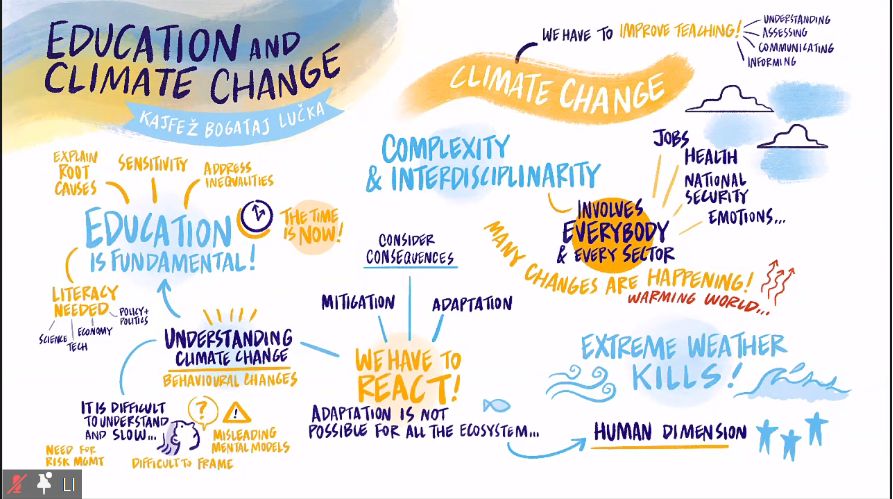 EDUCATION AND
CLIMATE CHANGE
KAJFEŽ BOGATAJ LUČKA
WE HAVE TO IMPROVE TEACHING!
UNDERSTANDING
ASSESSING
COMMUNICATING
INFORMING
CLIMATE CHANGE
COMPLEXITY
& INTERDISCIPLINARITY
INVOLVES
EVERYBODY
& EVERY SECTOR
JOBS
HEALTH
NATIONAL
SECURITY
EMOTIONS...
MANY CHANGES ARE HAPPENING!
WARMING WORLD...
EXPLAIN
ROOT
CAUSES
SENSITIVITY
ADDRESS
INEQUALITIES
EDUCATION
IS FUNDAMENTAL!
THE TIME
IS NOW!
LITERACY
NEEDED
SCIENCE
TECH
ECONOMY
POLICY+
POLITICS
UNDERSTANDING
CLIMATE CHANGE
BEHAVIOURAL CHANGES
IT IS DIFFICULT
TO UNDERSTAND
AND SLOW...
?
!
MISLEADING
MENTAL MODELS
NEED FOR
RISK MGMT
DIFFICULT TO FRAME
CONSIDER
CONSEQUENCES
MITIGATION
ADAPTATION
WE HAVE TO
REACT!
ADAPTATION IS NOT
POSSIBLE FOR ALL THE ECOSYSTEM...
EXTREME WEATHER
KILLS!
HUMAN DIMENSION
LI